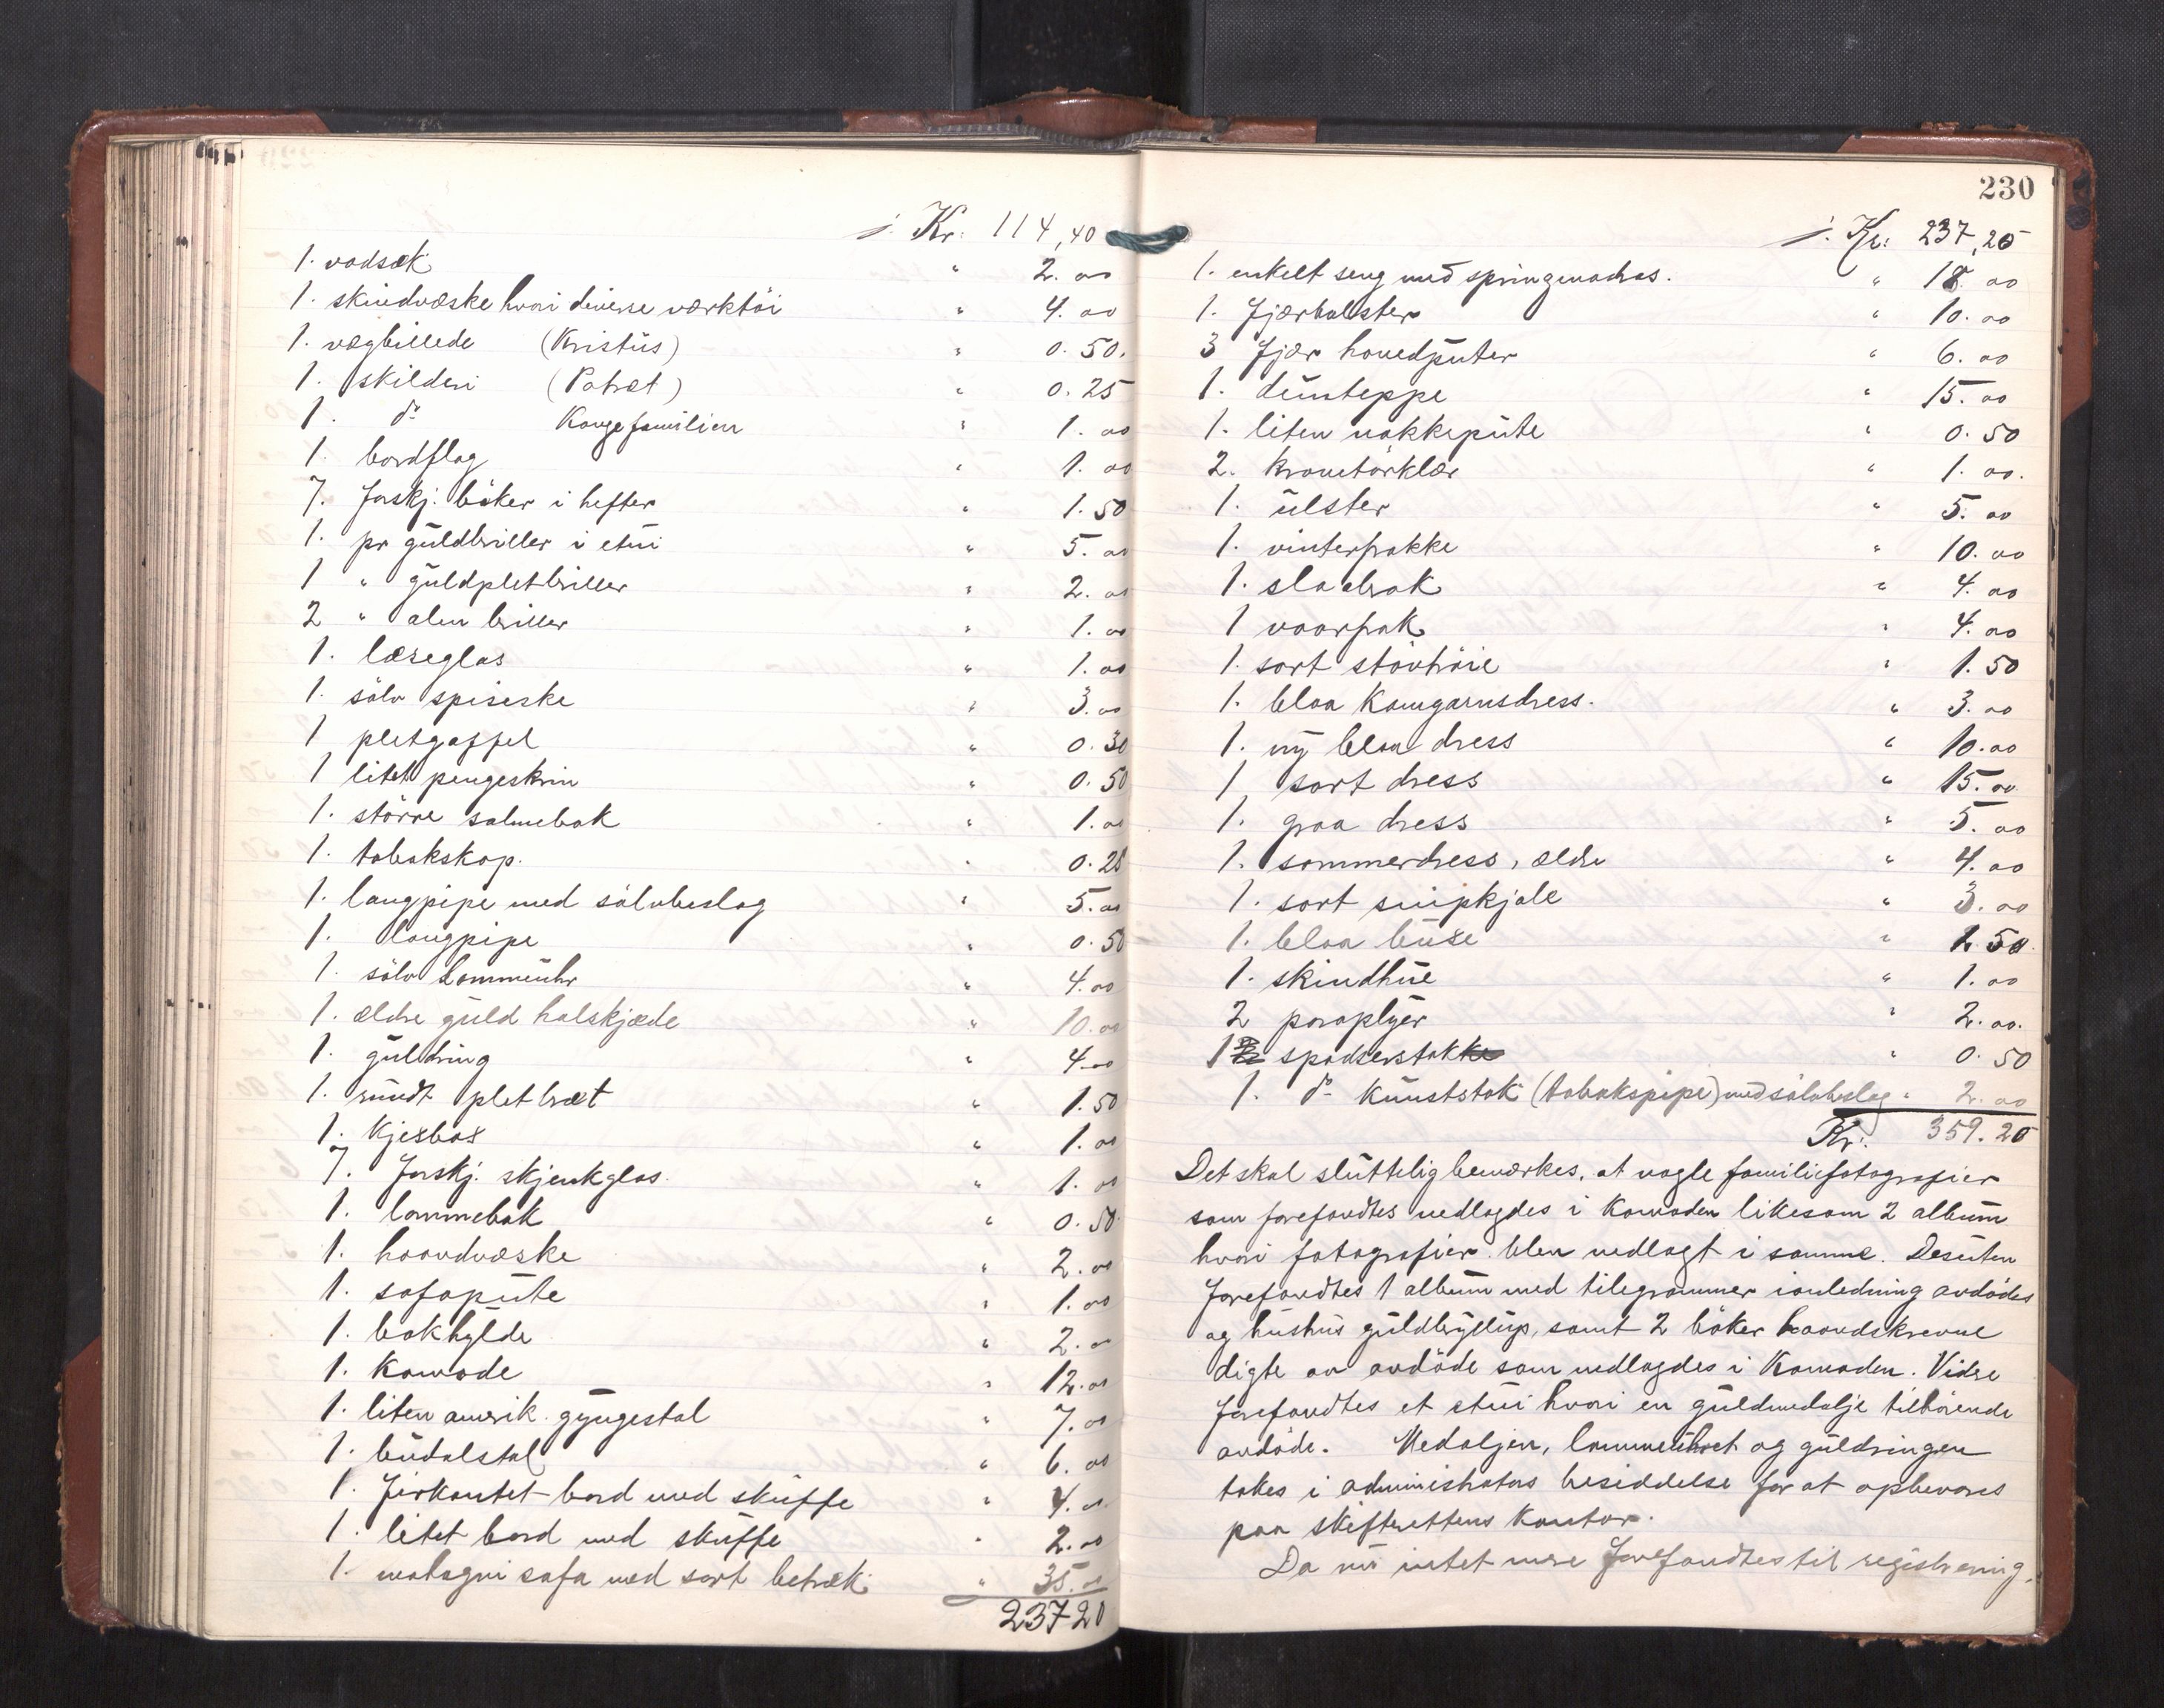 ÷ Kr. 114,40
1. vadsæk " 2.00
1. skindvæske hvori diverse værktöi " 4.00
1. vægbillede (Kristus) " 0.50.
1. skilderi (Patræt) " 0.25
1. do Kongefamilien " 1.00
1. bordflag " 1.00
7. forskj. böker i hefter " 1.50
1. pr guldbriller i etui " 5.00
1 " guldpletbriller " 2.00
2 " alm briller " 1.00
1. læseglas " 1.00
1. sölv spiseske " 3.00
1 pletgaffel " 0.30
1 litet pengeskrin " 0.50
1. större salmebok " 1.00
1. tobakskop. " 0.25
1. langpipe med sölvbeslag " 5.00
1. langpipe " 0.50
1. sölv Lommeuhr " 4.00
1. ældre guld halskjæde " 10.00
1. guldring " 4.00
1. rundt pletbræt " 1.50
1. Kjexbox " 1.00
7. forskj. skjenkglas. " 1.00
1. lommebok " 0.50
1. haandvæske " 2.00
1. sofapute " 1.00
1. bokhylde " 2.00
1. Komode " 12.00
1. liten amerik. gyngestol " 7.00
1. budalstol " 6.00
1. firkantet bord med skuffe " 4.00
1. litet bord med skuffe " 2.00
1. mahogni sofa med sort betræk. " 35.00
237 20
230
÷ Kr: 237,20
1. enkelt seng med springmadras. " 18.00
1. fjærbolster " 10.00
3 fjær hovedputer " 6.00
1. dunteppe " 15.00
1. liten nakkepute " 0.50
2. kravetörklær " 1.00.
1. ulster " 5.00
1. vinterfrakke " 10.00
1. slabrok " 4.00
1 vaarfrak " 4.00
1. sort stövtröie " 1.50
1. blaa Kamgarnsdress. " 3.00
1. ny blaa dress " 10.00
1 sort dress " 15.00
1. graa dress " 5.00
1. sommerdress, ældre " 4.00
1. sort snipkjole " 3.00
1. blaa buxe " 1.50.
1. skindhue " 1.00
2 paraplyer " 2.00.
1 spadserstokke " 0.50
1. do Kunststok (tobakspipe) med sölvbeslag " 2.00
Kr. 359.20
Det skal sluttelig bemærkes, at nogle familiefotografier
som forefandtes nedlagdes i Komoden likesom 2 album
hvori fotografier. blev nedlagt i samme. Desuten
forefandtes 1 album med tilegrammer ianledning avdödes
og hustrus guldbryllup, samt 2 böker haandskrevne
digte av avdöde som nedlagdes i Komoden. Vidre
forefandtes et etui hvori en guldmedalje tilhörende
avdöde. Medaljen, lommeuhret og guldringen
tokes i administrators besiddelse for at opbevares
paa skifterettens Kontor.
Da nu intet mere forefandtes til registrering.